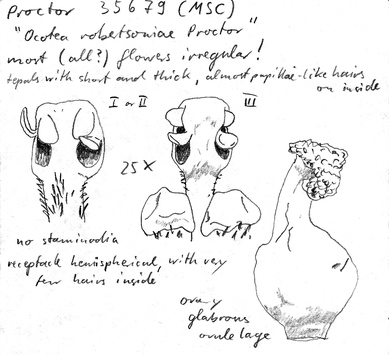 Proctor 35679 (MSC)
"Ocotea robertsoniae Proctor"
most (all?) flowers irregular!
tepals with short and thick, almost papillae-like hairs
on inside
I or II
III
25 X
no staminodia
receptacle hemispherical, with very
few hairs inside
ovary
glabrous
ovule large